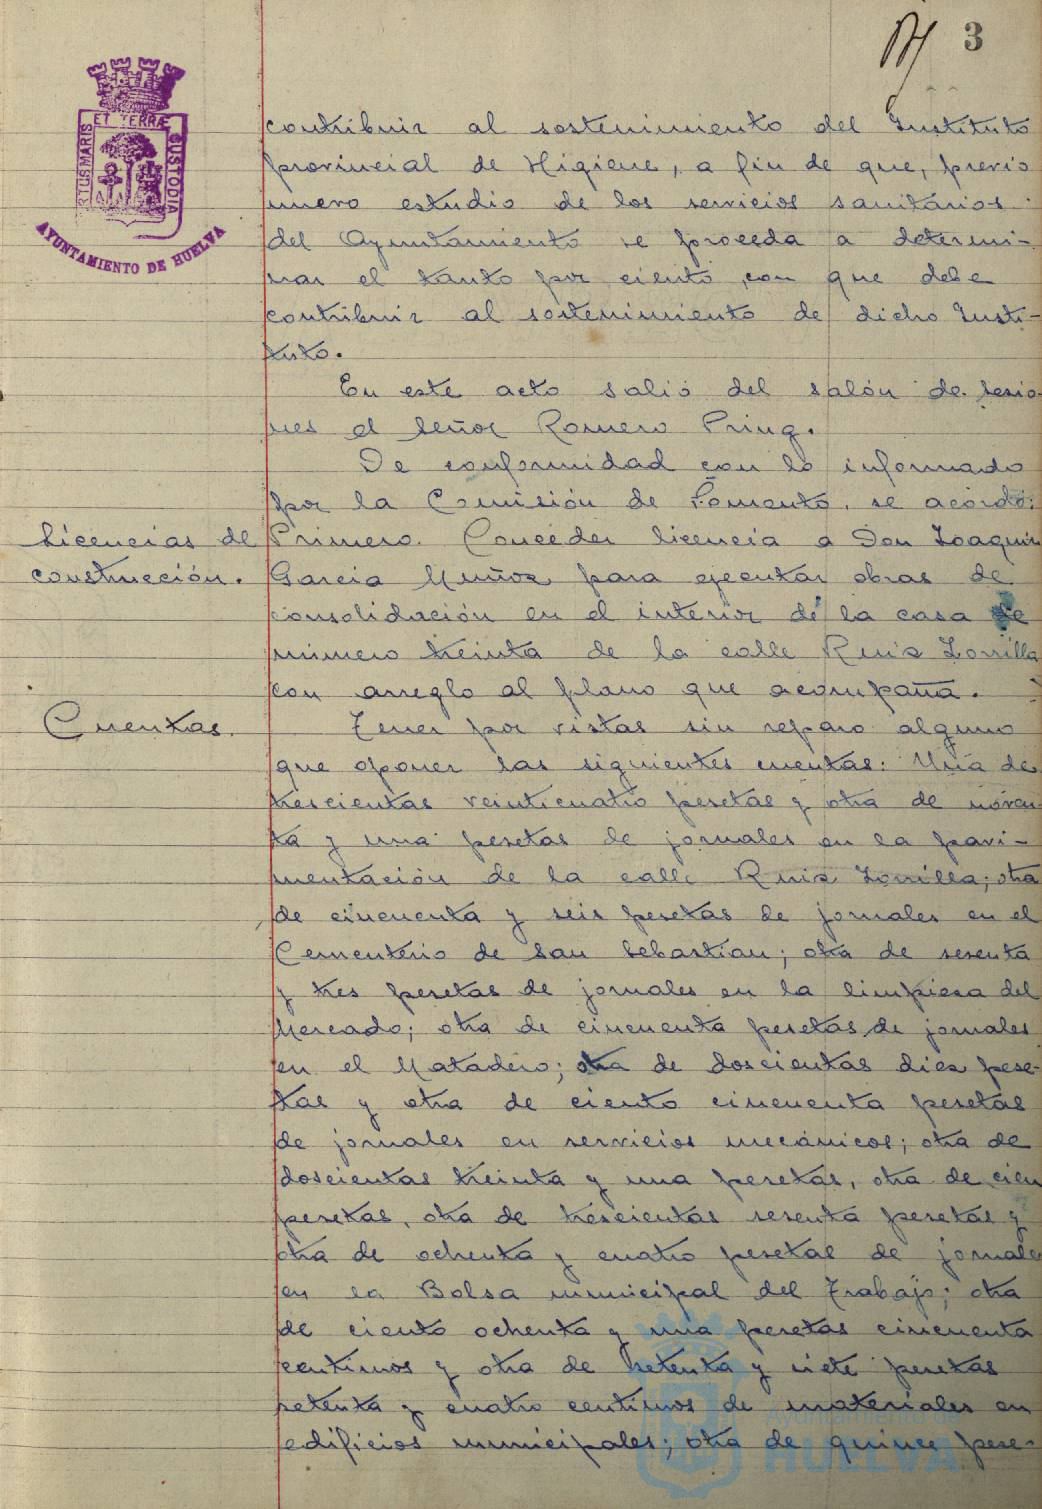 3
PORTUS MARIS ET TERRÆ CUSTODIA
AYUNTAMIENTO DE HUELVA
contribuir al sostenimiento del Instituto
provincial de Higiene, a fin de que, previo
nuevo estudio de los servicios sanitarios
del Ayuntamiento se proceda a determi-
nar el tanto por ciento con que debe
contribuir al sostenimiento de dicho Insti-
tuto.
En este acto salió del salón de sesio-
nes el Señor Romero Prinz.
De conformidad con lo informado
por la Comisión de Fomento, se acordó:
Licencias de
construcción.
Primero. Conceder licencia a Don Joaquin
Garcia Muñoz para ejecutar obras de
consolidación en el interior de la casa
número treinta de la calle Ruiz Zorrilla
con arreglo al plano que acompaña.
Cuentas.
Tener por vistas sin reparo alguno
que oponer las siguientes cuentas: Una de
trescientas veinticuatro pesetas y otra de noven
ta y una pesetas de jornales en la pavi-
mentación de la calle Ruiz Zorrilla; otra
de cincuenta y seis pesetas de jornales en el
Cementerio de San Sebastian; otra de sesenta
y tres pesetas de jornales en la limpieza del
Mercado; otra de cincuenta pesetas de jornales
en el Matadero; otra de doscientas diez pese-
tas y otra de ciento cincuenta pesetas
de jornales en servicios mecánicos; otra de
doscientas treinta y una pesetas, otra de cien
pesetas, otra de trescientas sesenta pesetas y
otra de ochenta y cuatro pesetas de jornales
en la Bolsa municipal del Trabajo; otra
de ciento ochenta y una pesetas cincuenta
centimos y otra de setenta y siete pesetas
setenta y cuatro centimos de materiales en
edificios municipales; otra de quince pese-
Ayuntamiento de
HUELVA